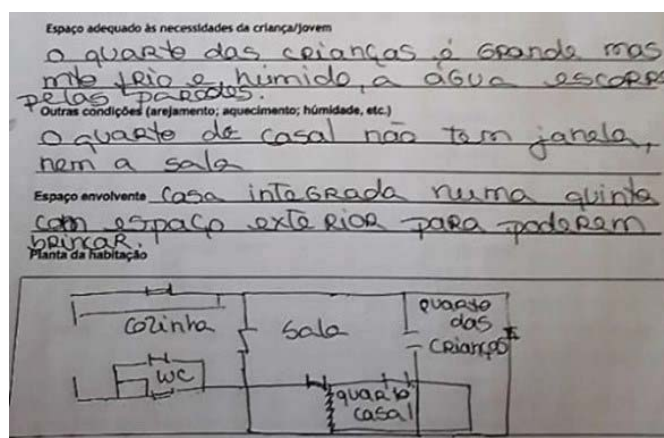 Espaço adequado às necessidades da criança/jovem
o quarto das crianças é grande mas
mto frio e húmido, a água escorre
pelas paredes.
Outras condições (arejamento; aquecimento; húmidade, etc.)
o quarto de casal não tem janela,
nem a sala
Espaço envolvente Casa integrada numa quinta
com espaço exterior para poderem
brincar.
Planta da habitação
Cozinha
Sala
quarto
das
crianças
WC
quarto
casal